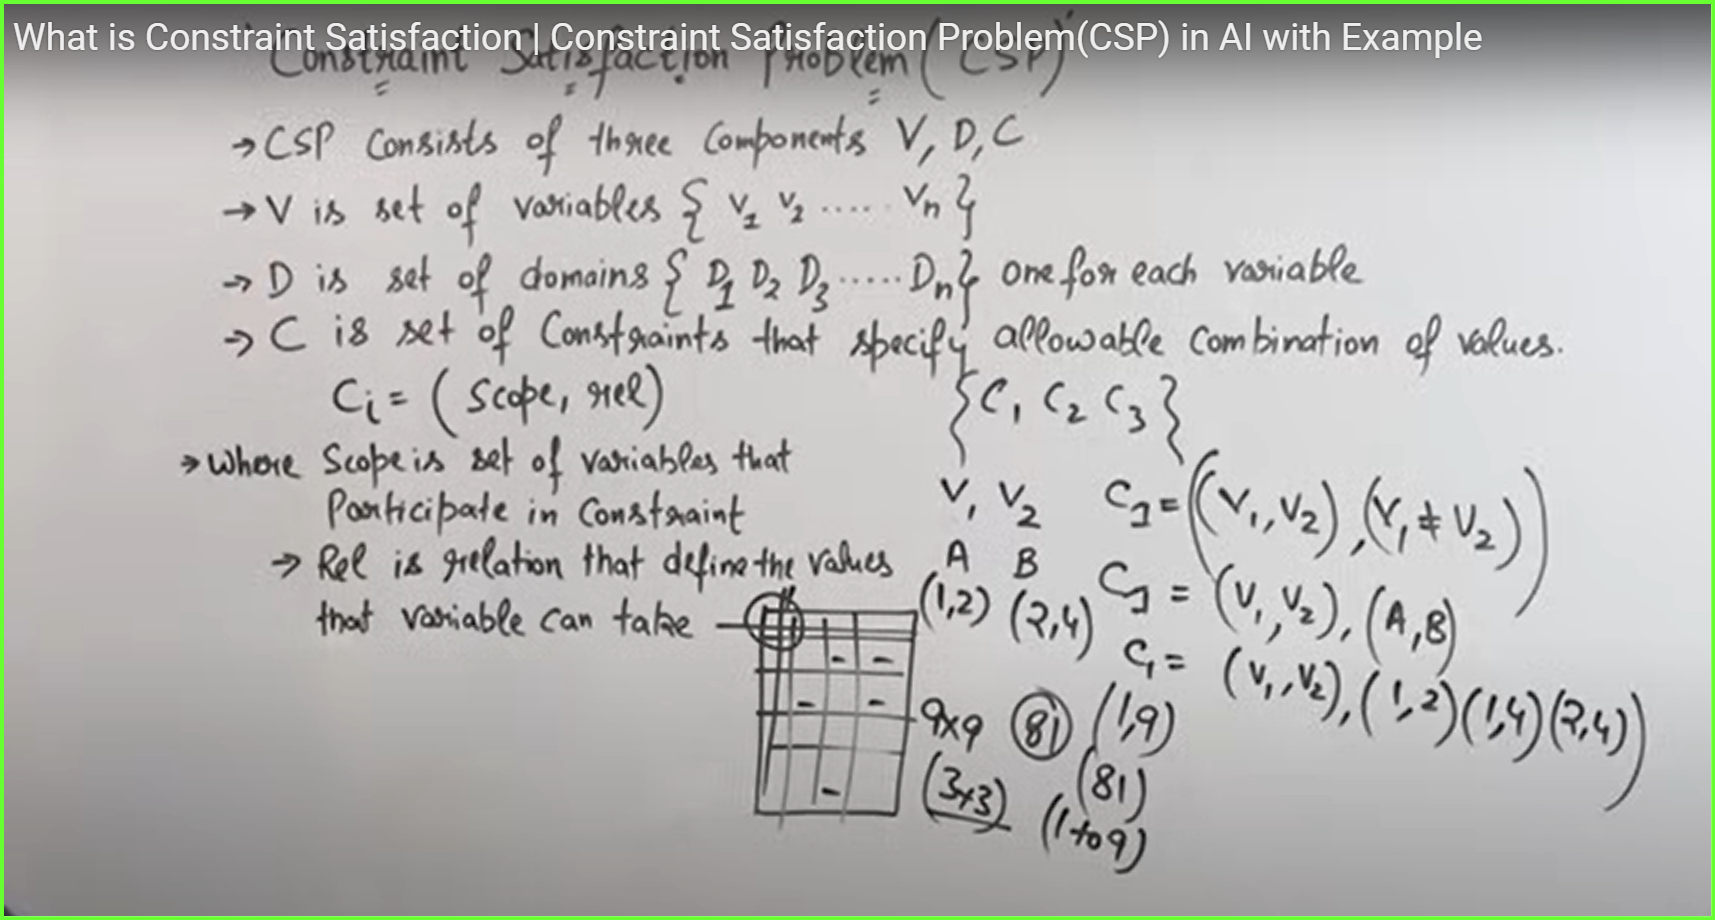 What is Constraint Satisfaction | Constraint Satisfaction Problem(CSP) in AI with Example
Constraint Satisfaction Problem (CSP)
→ CSP Consists of three Components V, D, C
→ V is set of variables { V1 V2 ..... Vn }
→ D is set of domains { D1 D2 D3 ..... Dn } one for each variable
→ C is set of Constraints that specify allowable combination of values.
Ci = (Scope, rel)
{ C1 C2 C3 }
→ Where Scope is set of variables that
Participate in Constraint
→ Rel is relation that define the values
that variable can take
V1 V2
A B
(1,2) (2,4)
C1 = ((V1, V2), (V1 ≠ V2))
C1 = (V1, V2), (A, B)
C1 = (V1, V2), (1,2) (1,4) (2,4))
9x9 81 (1,9)
(3x3) (81)
(1 to 9)